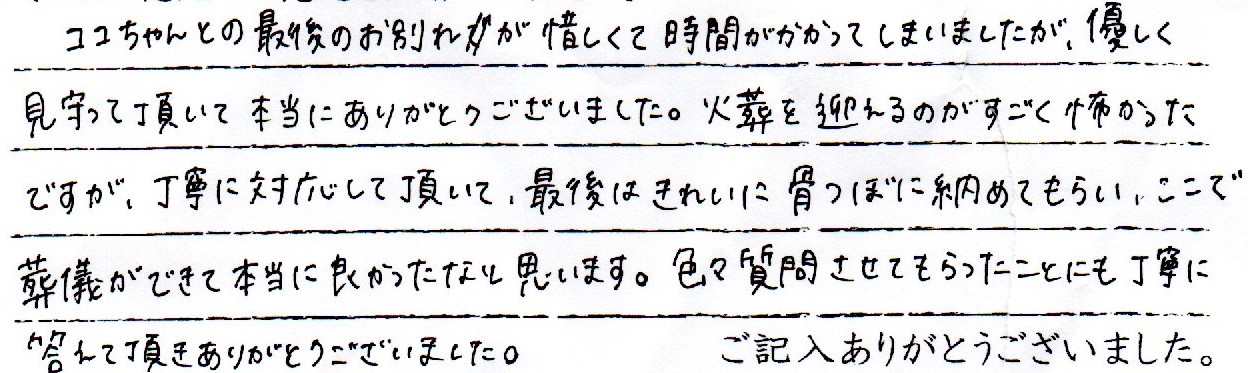 ココちゃんとの最後のお別れが惜しくて時間がかかってしまいましたが、優しく
見守って頂いて本当にありがとうございました。火葬を迎えるのがすごく怖かった
ですが、丁寧に対応して頂いて、最後はきれいに骨つぼに納めてもらい、ここで
葬儀ができて本当に良かったなと思います。色々質問させてもらったことにも丁寧に
答えて頂きありがとうございました。 ご記入ありがとうございました。